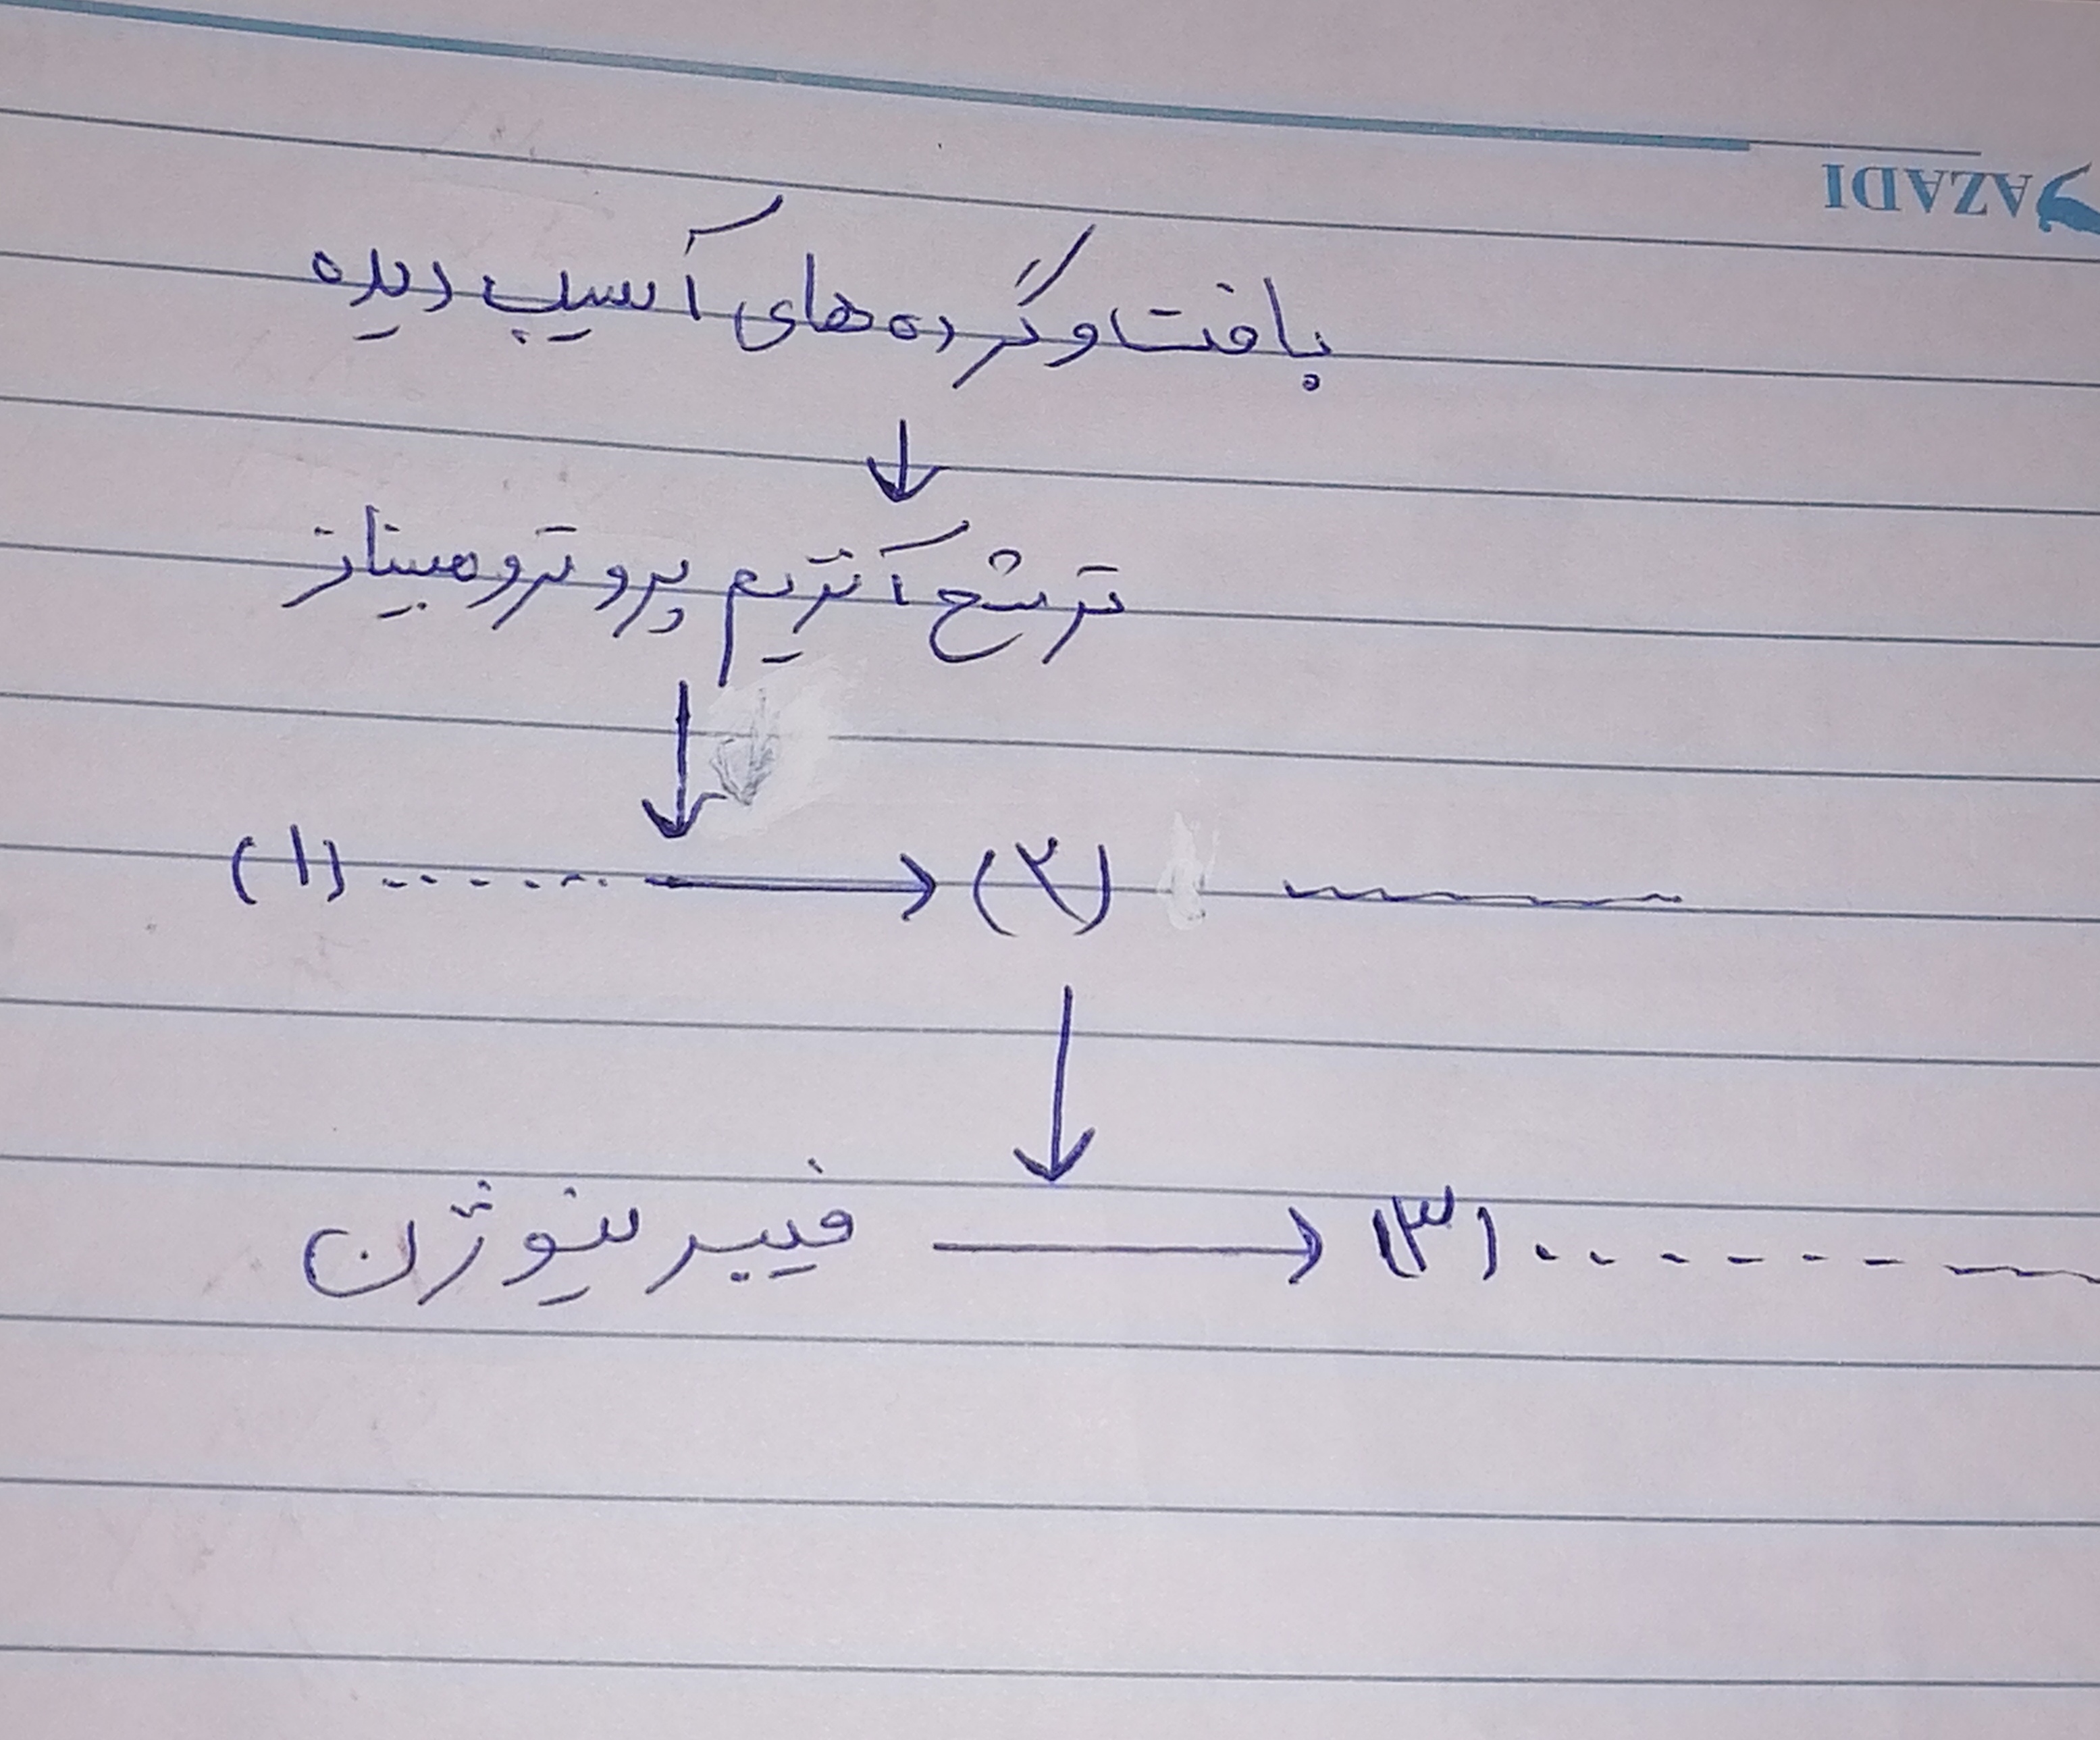 AZADI
بافت و گرده های آسیب دیده
↓
ترشح آنزیم پروترومبیناز
↓
(۱)........ → (۲) ........
↓
فیبرینوژن → (۳) ........